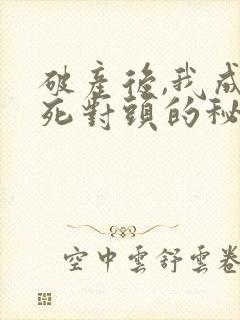 破産後,我成
死對頭的秘
空中雲舒雲卷